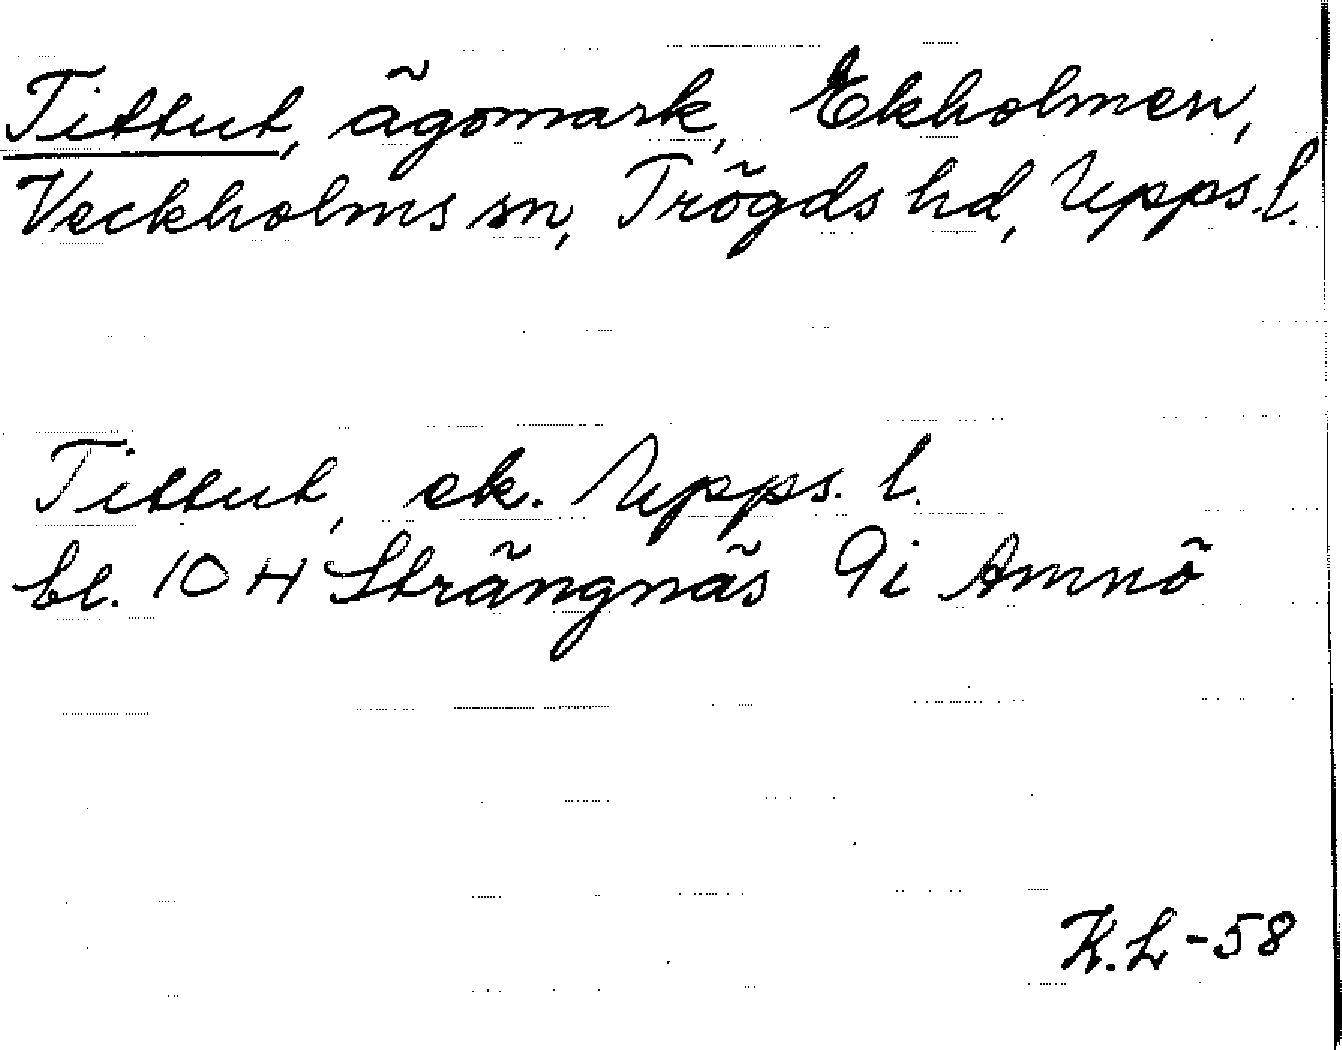 Tittut, ägomark, Ekholmen,
Veckholms sn, Trögds hd, Upps.l.
Tittut, ek. Upps. l.
bl. 10 H Strängnäs 9i Amnö
K.L-58